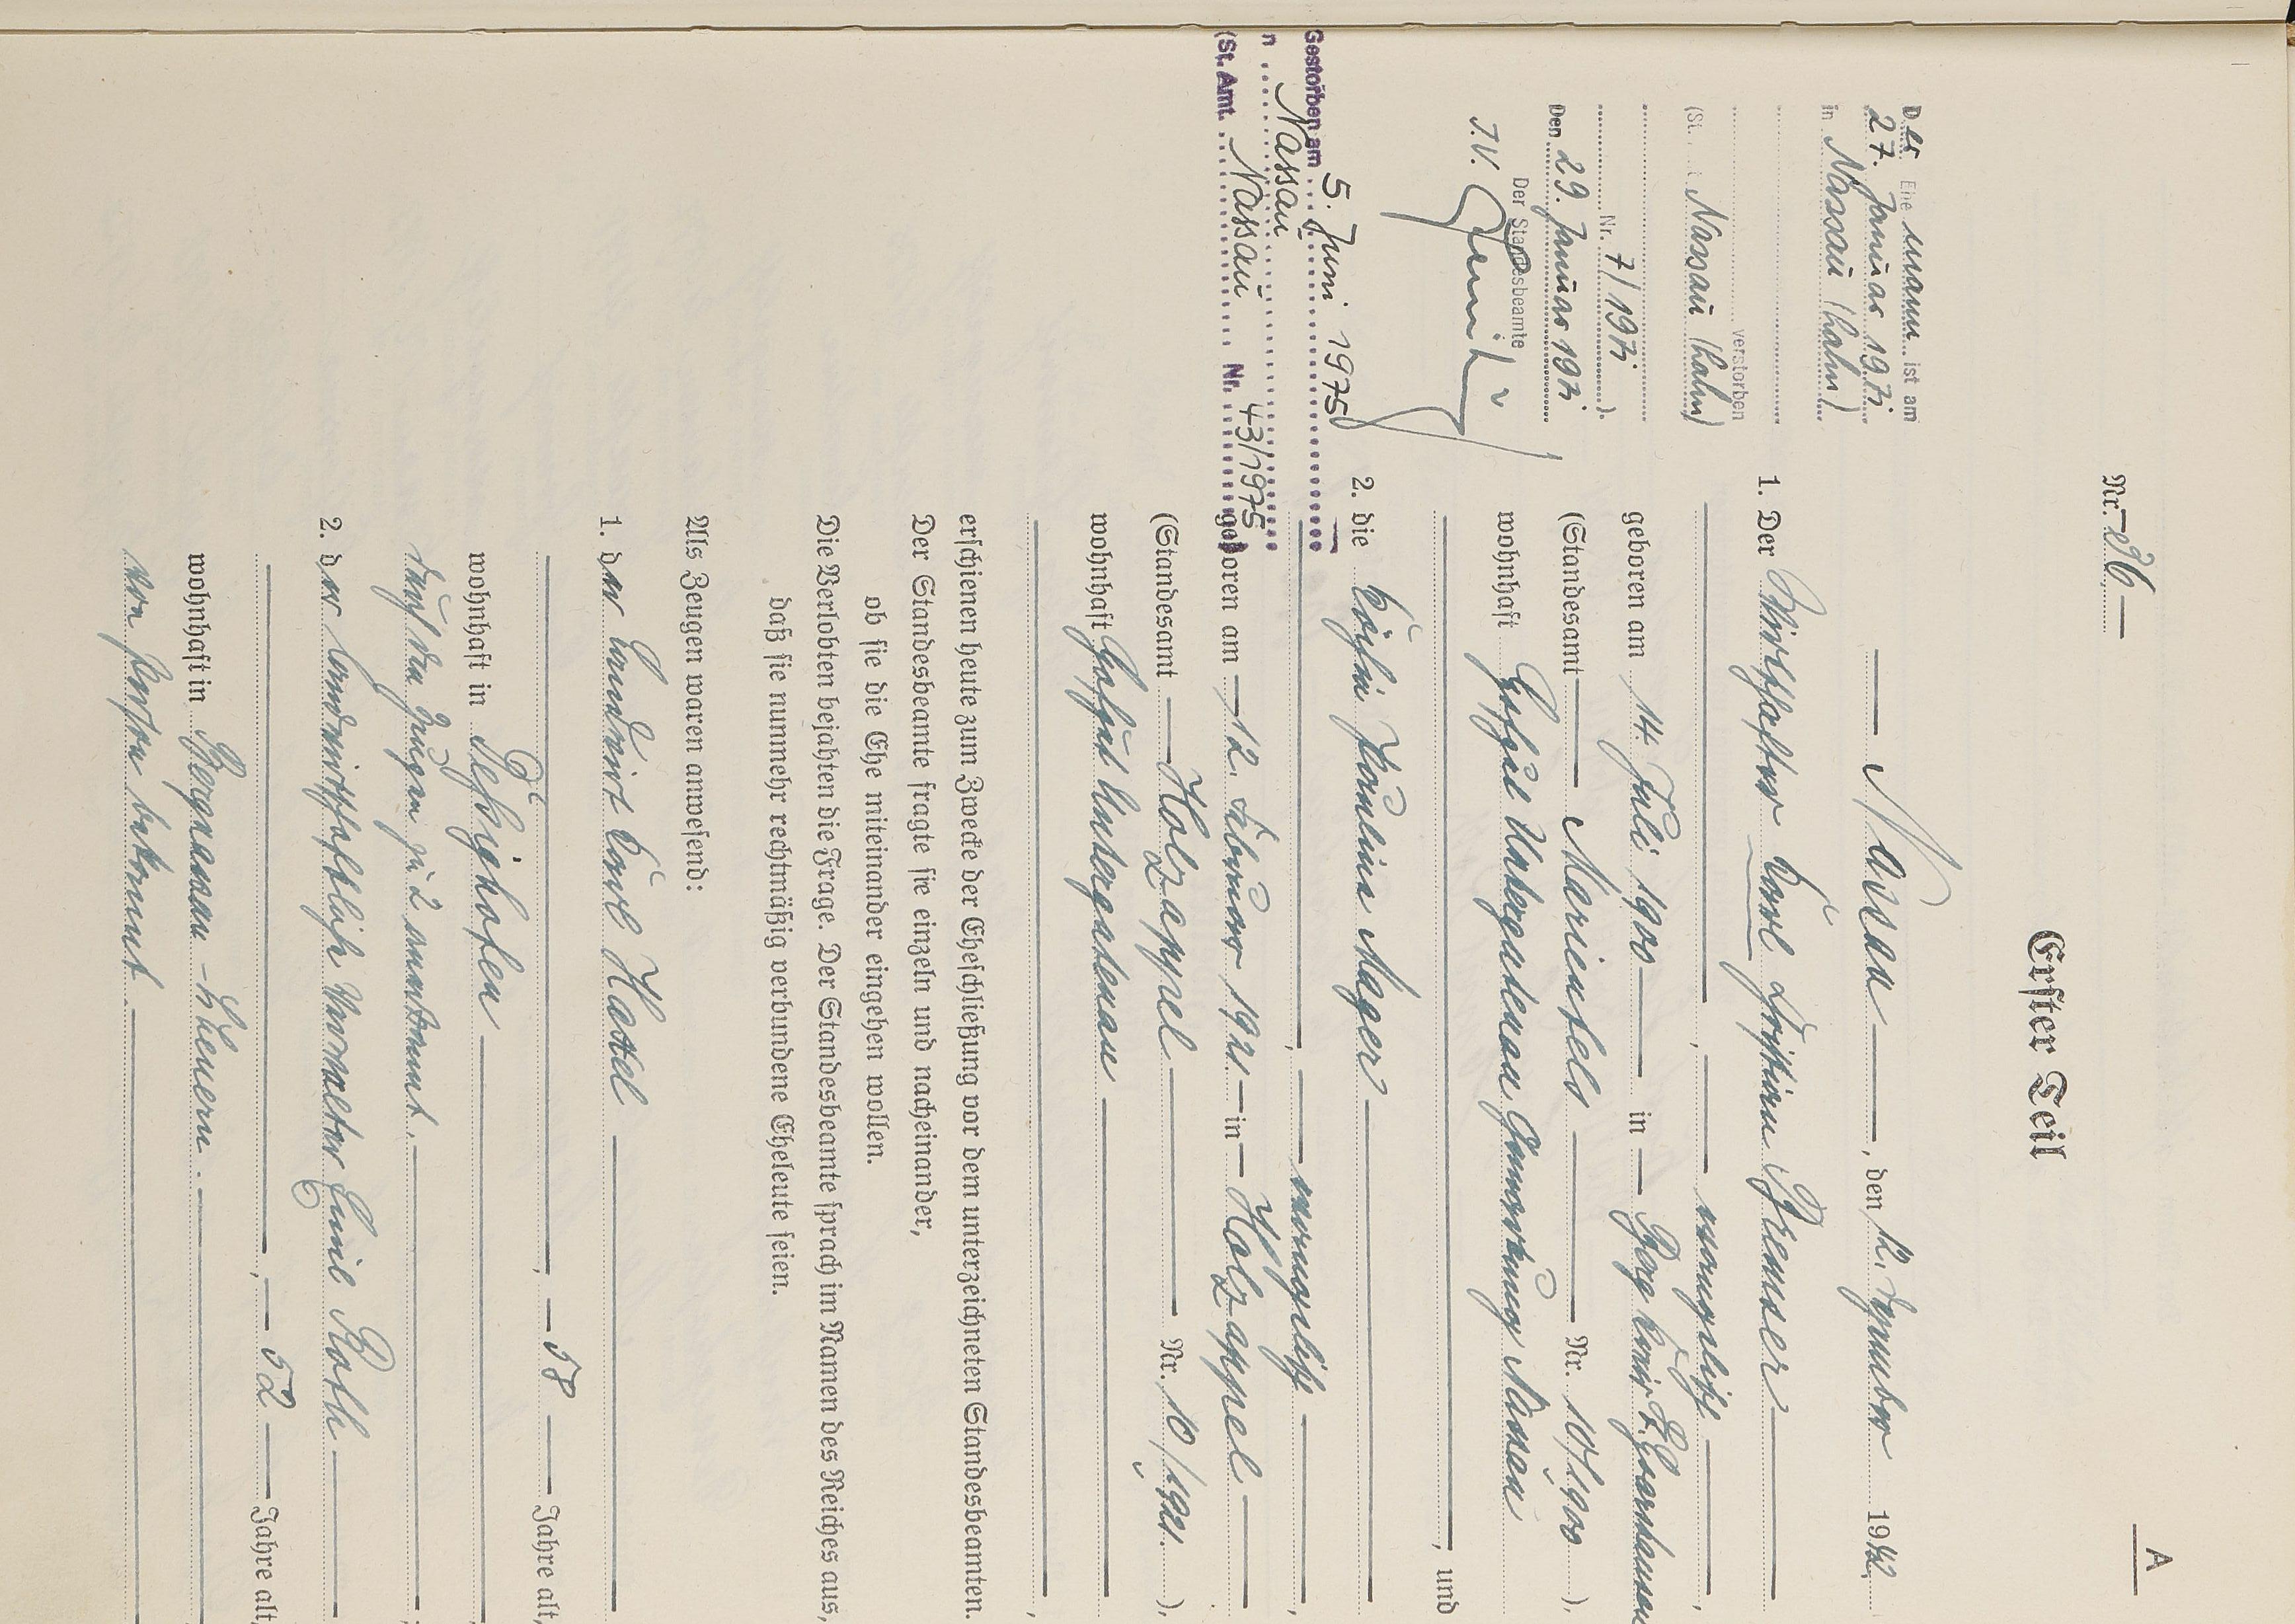 A
Erster Teil
Nr. 26
Nassau, den 12. Dezember 1942
1. Der Wirtschafter Karl Greuser
, evangelisch,
geboren am 14. Juli 1900 in
(Standesamt Marienfels Nr. 10/1900),
wohnhaft Hofgut Unteraulenau Nassau
, und
2. die Mager
, evangelisch,
geboren am 12. Februar 1921 in Holzappel
(Standesamt Holzappel Nr. 10/1921.),
wohnhaft Hofgut
,
erschienen heute zum Zwecke der Eheschließung vor dem unterzeichneten Standesbeamten.
Der Standesbeamte fragte sie einzeln und nacheinander,
ob sie die Ehe miteinander eingehen wollen.
Die Verlobten bejahten die Frage. Der Standesbeamte sprach im Namen des Reiches aus,
daß sie nunmehr rechtmäßig verbundene Eheleute seien.
Als Zeugen waren anwesend:
1. der Landwirt Karl Hassel
, 58 Jahre alt,
wohnhaft in Pessighofen
durch den Zeugen zu 2 anerkannt. ;
2. der landwirtschaftliche Verwalter Emil Roth
, 52 Jahre alt,
wohnhaft in Bergnassau-Scheuern.
von Person bekannt.
Der Ehemann ist am
27. Januar 1971
in Nassau (Lahn)
verstorben
(St. Nassau (Lahn)
Nr. 7/1971).
Den 29. Januar 1971
Der Standesbeamte
I.V.
Gestorben am 5. Juni 1975
n Nassau
(St. Amt. Nassau Nr. 43/1975)